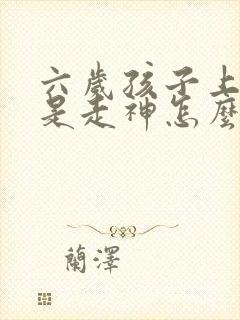 六歲孩子上
是走神怎麼
蘭澤